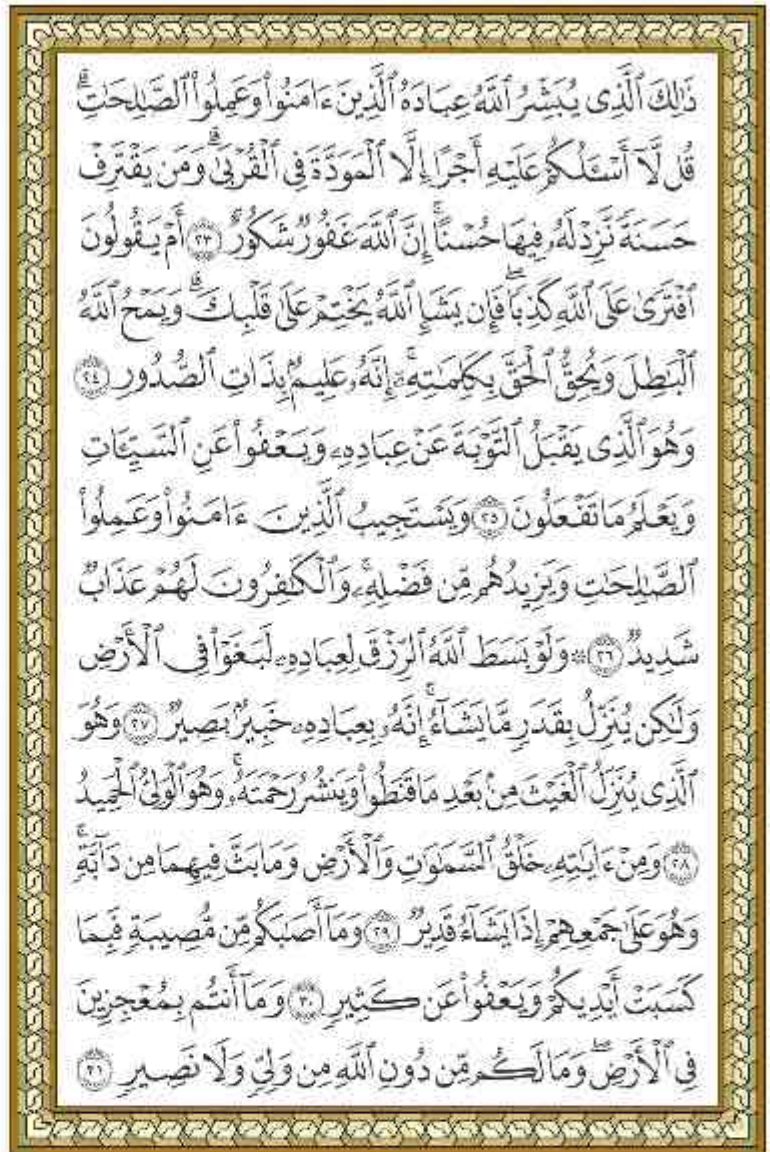 ذَٰلِكَ ٱلَّذِى يُبَشِّرُ ٱللَّهُ عِبَادَهُ ٱلَّذِينَ ءَامَنُوا۟ وَعَمِلُوا۟ ٱلصَّـٰلِحَـٰتِ ۗ
قُل لَّآ أَسْـَٔلُكُمْ عَلَيْهِ أَجْرًا إِلَّا ٱلْمَوَدَّةَ فِى ٱلْقُرْبَىٰ ۗ وَمَن يَقْتَرِفْ
حَسَنَةً نَّزِدْ لَهُۥ فِيهَا حُسْنًا ۚ إِنَّ ٱللَّهَ غَفُورٌ شَكُورٌ ﴿٢٣﴾ أَمْ يَقُولُونَ
ٱفْتَرَىٰ عَلَى ٱللَّهِ كَذِبًا ۖ فَإِن يَشَإِ ٱللَّهُ يَخْتِمْ عَلَىٰ قَلْبِكَ ۗ وَيَمْحُ ٱللَّهُ
ٱلْبَـٰطِلَ وَيُحِقُّ ٱلْحَقَّ بِكَلِمَـٰتِهِۦٓ ۚ إِنَّهُۥ عَلِيمٌۢ بِذَاتِ ٱلصُّدُورِ ﴿٢٤﴾
وَهُوَ ٱلَّذِى يَقْبَلُ ٱلتَّوْبَةَ عَنْ عِبَادِهِۦ وَيَعْفُوا۟ عَنِ ٱلسَّيِّـَٔاتِ
وَيَعْلَمُ مَا تَفْعَلُونَ ﴿٢٥﴾ وَيَسْتَجِيبُ ٱلَّذِينَ ءَامَنُوا۟ وَعَمِلُوا۟
ٱلصَّـٰلِحَـٰتِ وَيَزِيدُهُم مِّن فَضْلِهِۦ ۚ وَٱلْكَـٰفِرُونَ لَهُمْ عَذَابٌ
شَدِيدٌ ﴿٢٦﴾ ۞ وَلَوْ بَسَطَ ٱللَّهُ ٱلرِّزْقَ لِعِبَادِهِۦ لَبَغَوْا۟ فِى ٱلْأَرْضِ
وَلَـٰكِن يُنَزِّلُ بِقَدَرٍ مَّا يَشَآءُ ۚ إِنَّهُۥ بِعِبَادِهِۦ خَبِيرٌۢ بَصِيرٌ ﴿٢٧﴾ وَهُوَ
ٱلَّذِى يُنَزِّلُ ٱلْغَيْثَ مِنۢ بَعْدِ مَا قَنَطُوا۟ وَيَنشُرُ رَحْمَتَهُۥ ۚ وَهُوَ ٱلْوَلِىُّ ٱلْحَمِيدُ
﴿٢٨﴾ وَمِنْ ءَايَـٰتِهِۦ خَلْقُ ٱلسَّمَـٰوَٰتِ وَٱلْأَرْضِ وَمَا بَثَّ فِيهِمَا مِن دَآبَّةٍ ۚ
وَهُوَ عَلَىٰ جَمْعِهِمْ إِذَا يَشَآءُ قَدِيرٌ ﴿٢٩﴾ وَمَآ أَصَـٰبَكُم مِّن مُّصِيبَةٍ فَبِمَا
كَسَبَتْ أَيْدِيكُمْ وَيَعْفُوا۟ عَن كَثِيرٍ ﴿٣٠﴾ وَمَآ أَنتُم بِمُعْجِزِينَ
فِى ٱلْأَرْضِ ۖ وَمَا لَكُم مِّن دُونِ ٱللَّهِ مِن وَلِىٍّ وَلَا نَصِيرٍ ﴿٣١﴾